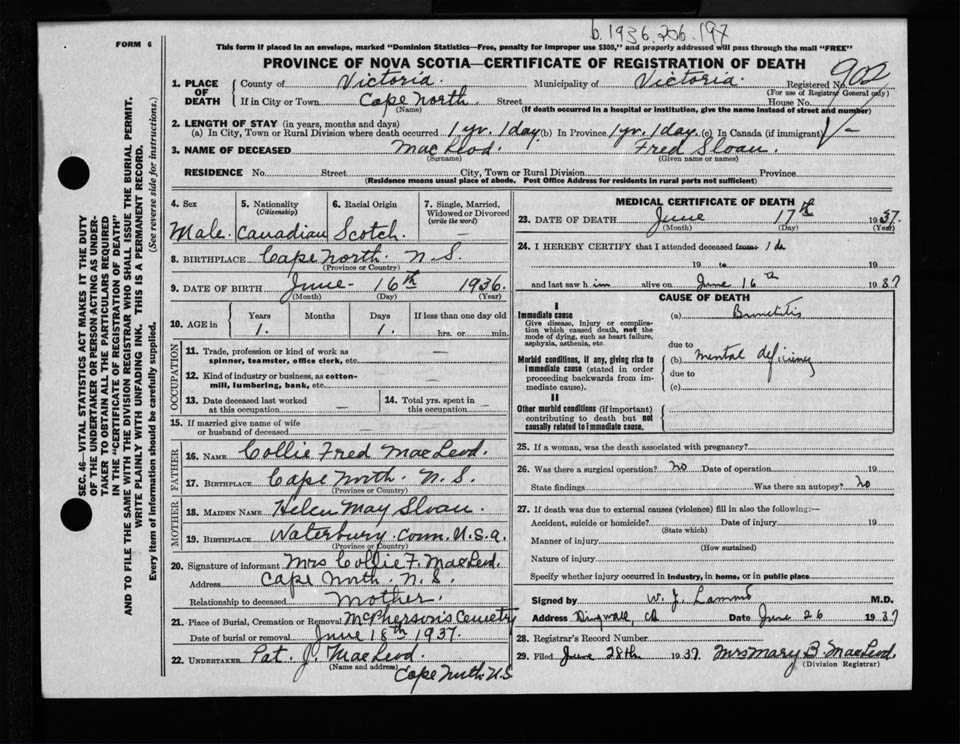 b. 1936.206.197
FORM 6
This form if placed in an envelope, marked "Dominion Statistics—Free, penalty for improper use $300," and properly addressed will pass through the mail "FREE"
PROVINCE OF NOVA SCOTIA—CERTIFICATE OF REGISTRATION OF DEATH
1. PLACE OF DEATH County of Victoria. Municipality of Victoria. Registered No. 902
(For use of Registrar General only)
If in City or Town Cape North. Street House No.
(Name) (If death occurred in a hospital or institution, give the name instead of street and number)
2. LENGTH OF STAY (in years, months and days)
(a) In City, Town or Rural Division where death occurred 1 yr. 1 day. (b) In Province 1 yr. 1 day. (c) In Canada (if immigrant)
3. NAME OF DECEASED MacLeod. Fred Sloan.
(Surname) (Given name or names)
RESIDENCE No. Street City, Town or Rural Division Province
(Residence means usual place of abode. Post Office Address for residents in rural parts not sufficient)
4. Sex
Male.
5. Nationality
(Citizenship)
Canadian
6. Racial Origin
Scotch.
7. Single, Married, Widowed or Divorced
(write the word)
—
8. BIRTHPLACE Cape North. N. S.
(Province or Country)
9. DATE OF BIRTH June - 16th 1936.
(Month) (Day) (Year)
10. AGE in Years Months Days If less than one day old
1. 1. hrs. or min.
OCCUPATION
11. Trade, profession or kind of work as
spinner, teamster, office clerk, etc. —
12. Kind of industry or business, as cotton-
mill, lumbering, bank, etc. —
13. Date deceased last worked
at this occupation —
14. Total yrs. spent in
this occupation —
15. If married give name of wife
or husband of deceased
FATHER
16. NAME Collie Fred MacLeod.
17. BIRTHPLACE Cape North. N. S.
(Province or Country)
MOTHER
18. MAIDEN NAME Helen May Sloan.
19. BIRTHPLACE Waterbury. Conn. U.S.a.
(Province or Country)
20. Signature of informant Mrs Collie F. MacLeod.
Address Cape North. N. S.
Relationship to deceased Mother.
21. Place of Burial, Cremation or Removal McPherson's Cemetry
Date of burial or removal June 18th 1937.
22. UNDERTAKER Pat. J. MacLeod.
(Name and address) Cape North. N.S
MEDICAL CERTIFICATE OF DEATH
23. DATE OF DEATH June 17th 1937.
(Month) (Day) (Year)
24. I HEREBY CERTIFY that I attended deceased from
19 to 19
and last saw him alive on June 16th 1937
CAUSE OF DEATH
I
Immediate cause
Give disease, injury or complica-
tion which caused death, not the
mode of dying, such as heart failure,
asphyxia, asthenia, etc.
(a) Bronchitis
due to
Morbid conditions, if any, giving rise to
immediate cause (stated in order
proceeding backwards from im-
mediate cause).
(b) mental deficiency
due to
(c)
II
Other morbid conditions (if important)
contributing to death but not
causally related to immediate cause.
25. If a woman, was the death associated with pregnancy?
26. Was there a surgical operation? no Date of operation 19
State findings Was there an autopsy? no
27. If death was due to external causes (violence) fill in also the following:—
Accident, suicide or homicide? Date of injury 19
(State which)
Manner of injury
(How sustained)
Nature of injury
Specify whether injury occurred in industry, in home, or in public place
Signed by W. J. Lamond M.D.
Address Dingwall, CB Date June 26 1937
28. Registrar's Record Number
29. Filed June 28th 1937. Mrs Mary B. MacLeod.
(Division Registrar)
SEC. 46—VITAL STATISTICS ACT MAKES IT THE DUTY
OF THE UNDERTAKER OR PERSON ACTING AS UNDER-
TAKER TO OBTAIN ALL THE PARTICULARS REQUIRED
IN THE "CERTIFICATE OF REGISTRATION OF DEATH"
AND TO FILE THE SAME WITH THE DIVISION REGISTRAR WHO SHALL ISSUE THE BURIAL PERMIT.
WRITE PLAINLY WITH UNFADING INK. THIS IS A PERMANENT RECORD.
Every item of information should be carefully supplied. (See reverse side for instructions.)